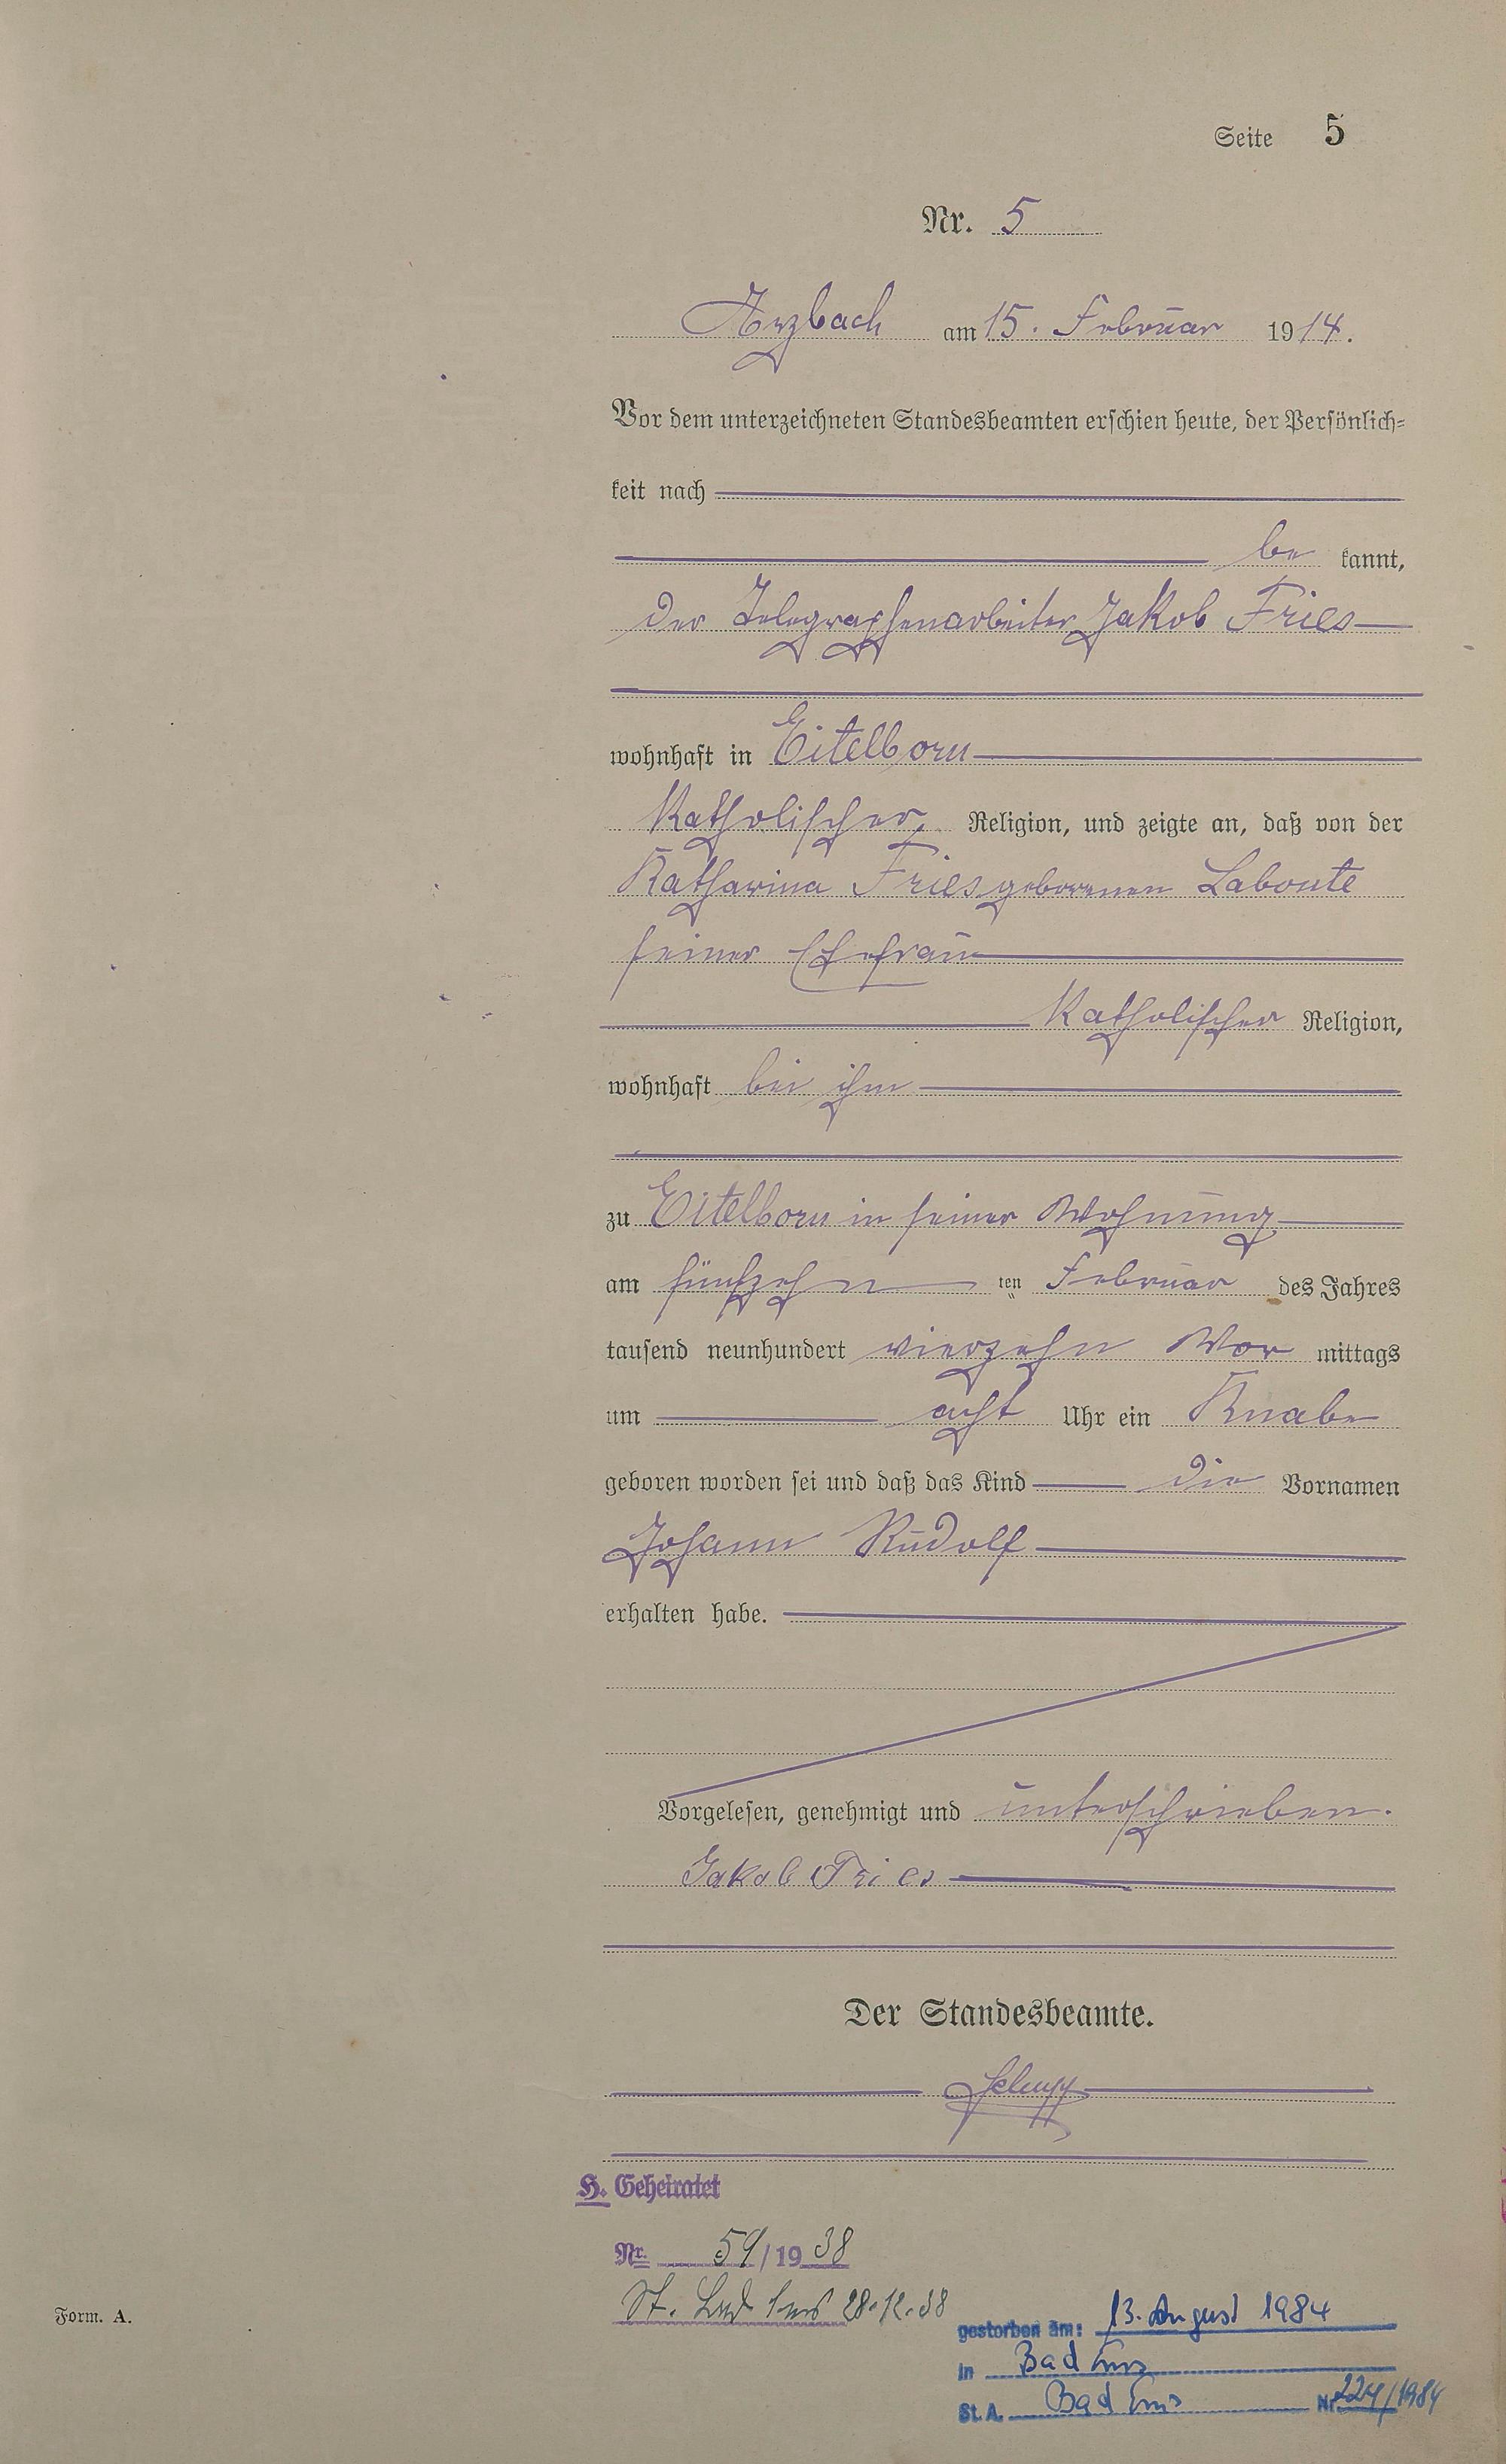 Seite 5
Nr. 5
Arzbach am 15. Februar 1914.
Vor dem unterzeichneten Standesbeamten erschien heute, der Persönlich-
keit nach
be kannt,
der Telegraphenarbeiter Jakob Fries
wohnhaft in Eitelborn
Katholischer Religion, und zeigte an, daß von der
Katharina Fries geborenen Labonte
seiner Ehefrau
Katholischer Religion,
wohnhaft bei ihm
zu Eitelborn in seiner Wohnung
am fünfzehn ten Februar des Jahres
tausend neunhundert vierzehn Vor mittags
um acht Uhr ein Knabe
geboren worden sei und daß das Kind die Vornamen
Johann Rudolf
erhalten habe.
Vorgelesen, genehmigt und unterschrieben.
Jakob Fries
Der Standesbeamte.
H. Geheiratet
Nr. 59/1938
St. Bad Ems 28.12.38
Form. A.
gestorben am: 13. August 1984
in Bad Ems
St. A. Bad Ems Nr 224/1984